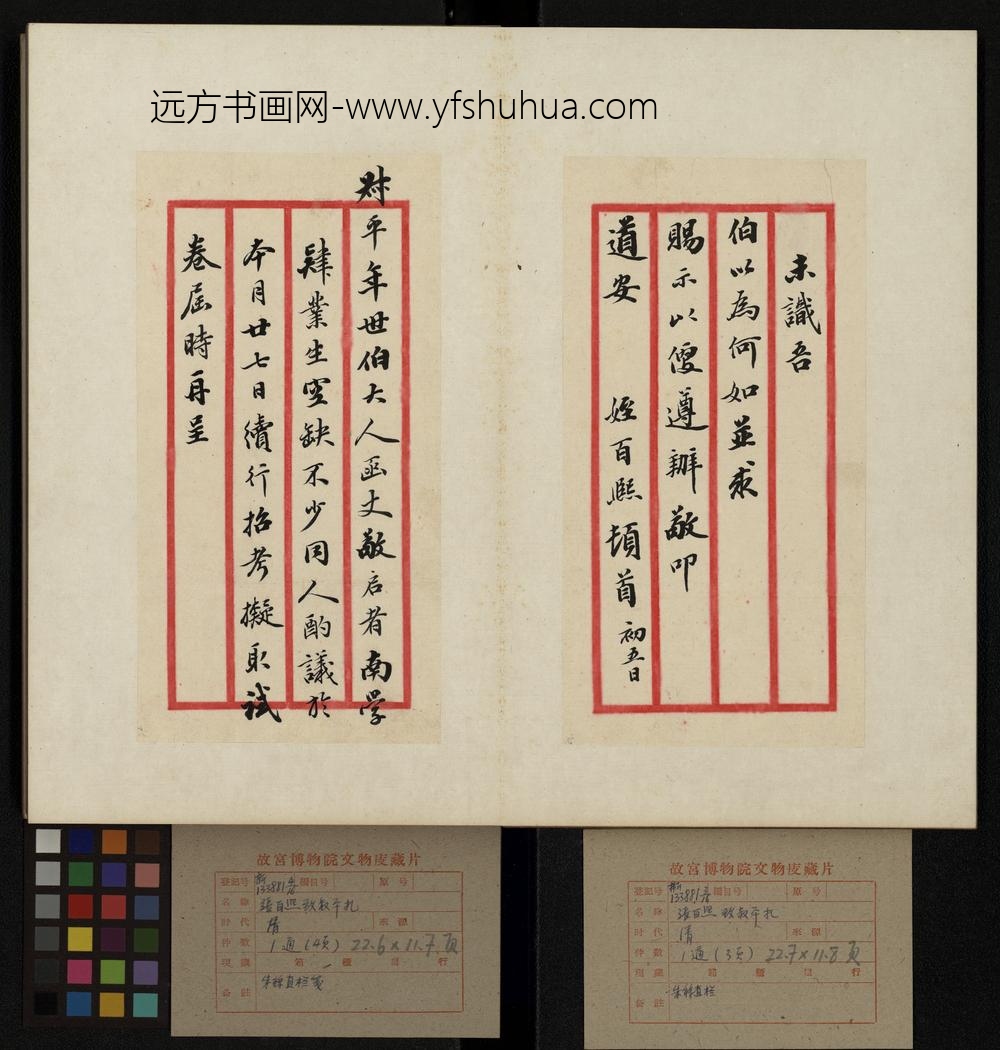 远方书画网-www.yfshuhua.com
未識吾
伯以為何如並求
賜示以便遵辦敬叩
道安 姪百熙頓首 初五日
叔平年世伯大人函丈敬启者南学
肄業生空缺不少同人酌議於
本月廿七日續行招考擬取試
卷屆時再呈
故宮博物院文物庋藏片
登記号 新133881 編目号 原号
名称 張百熙致叔平札
时代 清 來源
件數 1通(4頁) 22.6×11.7頁
現藏 箱 櫃 層 行
备註 朱絲直栏笺
故宮博物院文物庋藏片
登記号 新133881 編目号 原号
名称 張百熙致叔平札
时代 清 來源
件數 1通(3頁) 22.7×11.8頁
現藏 箱 櫃 層 行
备註 朱絲直栏